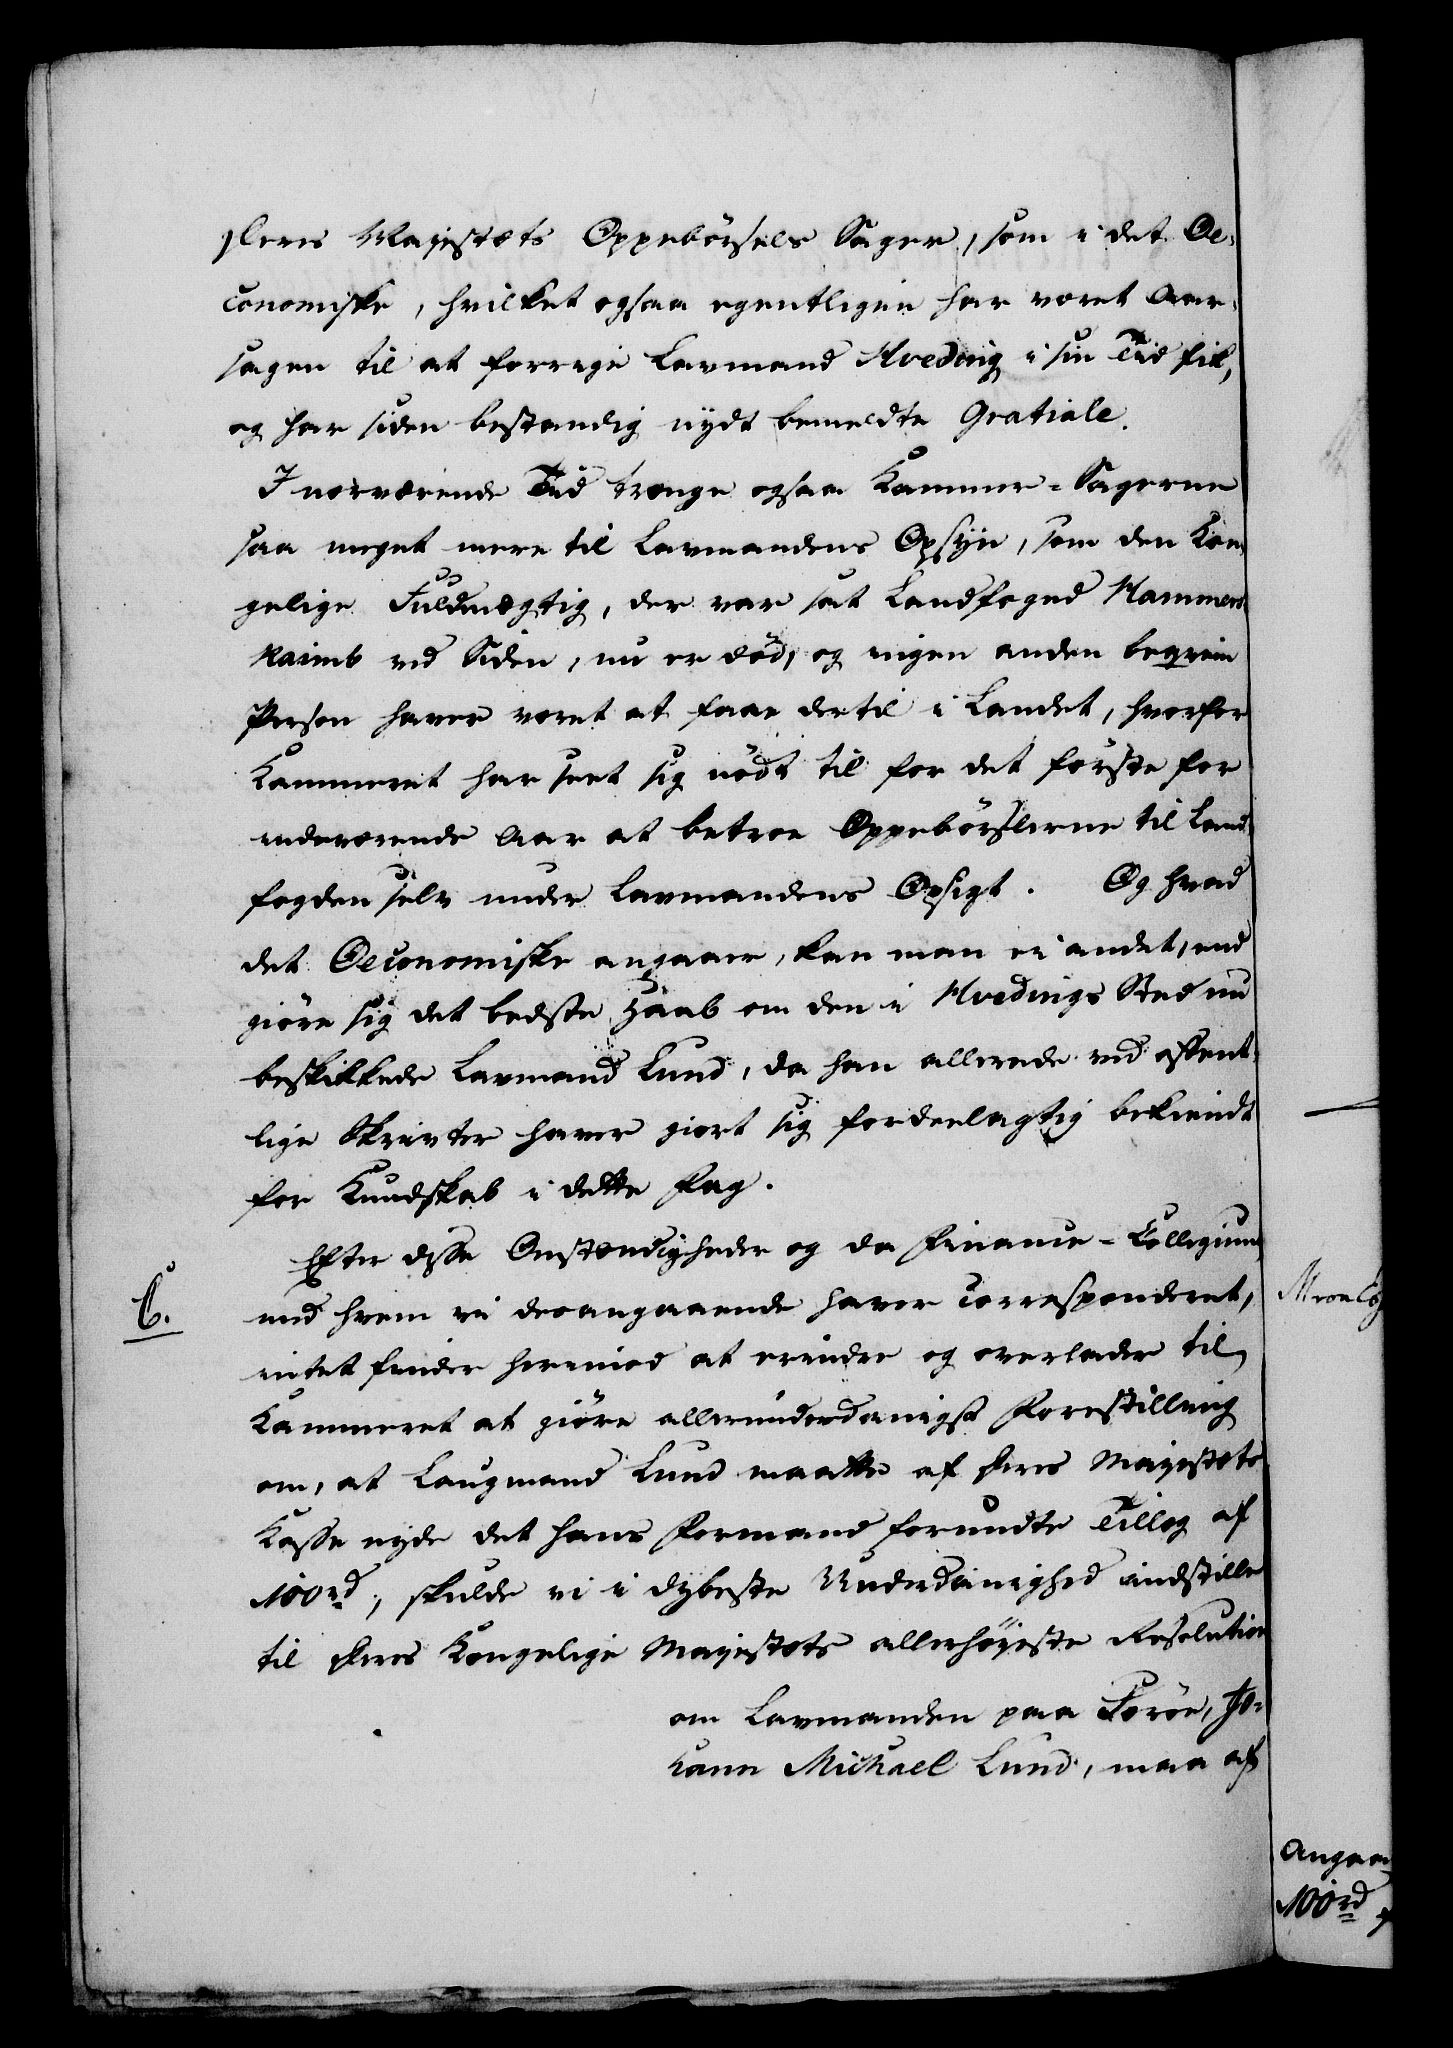 Deres Majestæts Oppebörsels Sager, som i det Oe-
conomiske, hvilket ogsaa egentligen har været Aar-
sagen til at forrige Lavmand Hveding i sin Tid fik,
og har siden bestandig nydt bemeldte Gratiale.
I nærværende Tid trænge ogsaa Kammer-Sagerne
saa meget mere til Lavmandens Opsÿn, som den Kon-
gelige Fuldmægtig, der var sat Landfoged Hammers-
haimb ved Siden, nu er död, og ingen anden beqvem
Person haver været at faae dertil i Landet, hvorfor
Kammeret har seet sig nödt til for det förste for
indeværende Aar at betroe Oppebörslerne til Land-
fogden selv under Lavmandens Opsigt. Og hvad
det Oeconomiske angaaer, kan man ei andet, end
giöre sig det bedste Haab om den i Hvedings Sted nu
beskikkede Lavmand Lund, da han allerede ved offent-
lige Skrivter haver giort sig fordeelagtig bekiendt
for Kundskab i dette Fag.
Efter disse Omstændigheder og da Finance-Collegium
C.
med hvem vi deroangaaende haver corresponderet,
intet finder herimod at erindre og overlader til
Kammeret at giöre allerunderdanigst Forestilling
om, at Laugmand Lund maatte af Deres Majestæts
Kasse nyde det hans Formand forundte Tillæg af
100 rd, skulde vi i dybeste Underdanighed indstille
til Deres Kongelige Majestæts allerhöyeste Resolution
om Lavmanden paa Færöe, Jo-
hann Michael Lund, maa af
Angaa
100 rd